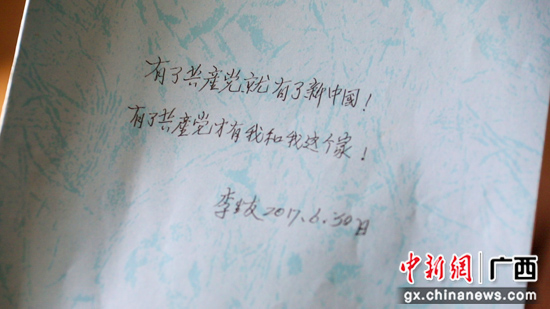 有了共産党就有了新中國!
有了共産党才有我和我这个家!
李 2017.6.30日
中新網 广西
gx.chinanews.com